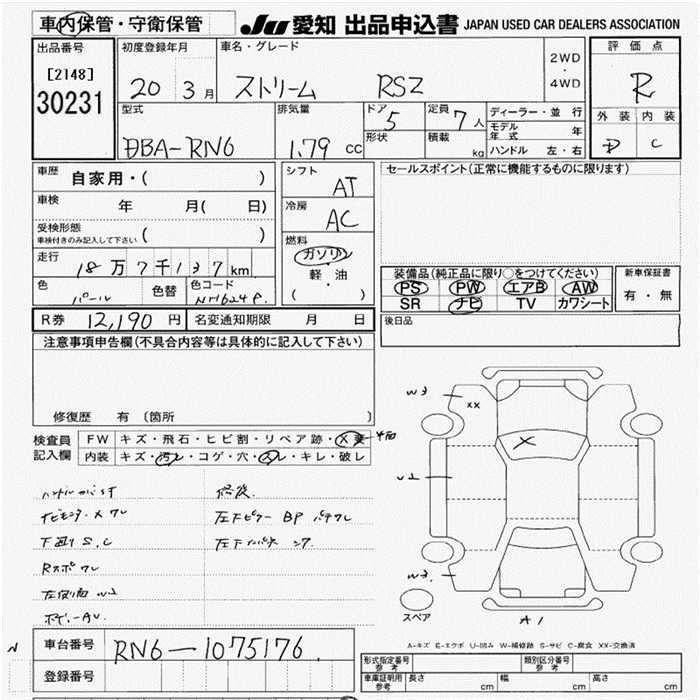 車内保管・守衛保管
JU 愛知 出品申込書 JAPAN USED CAR DEALERS ASSOCIATION
出品番号
[2148]
30231
初度登録年月
20 3月
車名・グレード
ストリーム RSZ
2WD
・
4WD
評価点
R
外装 内装
D C
型式
DBA-RN6
排気量
1.79 cc
ドア
5
形状
定員
7人
積載
kg
ディーラー・並行
モデル年式 年
ハンドル 左・右
車歴
自家用・( )
車検
年 月( 日)
受検形態
車検付きのみ記入して下さい ( )
走行
18万7千137km
色
パール
色替
色コード
NH624P
シフト
AT
冷房
AC
燃料
ガソリン
軽・油
( )
セールスポイント(正常に機能するものに限ります)
装備品(純正品に限り○をつけてください)
PS PW エアB AW
SR ナビ TV カワシート
新車保証書
有・無
R券 12,190円
名変通知期限 月 日
後日品
注意事項申告欄(不具合内容等は具体的に記入して下さい)
修復歴 有 〔箇所 〕
検査員
記入欄
FW キズ・飛石・ヒビ割・リペア跡・X要
内装 キズ・汚レ・コゲ・穴・スレ・キレ・破レ
修復
ナビモニター X ワレ
左下ピラー BP
下廻り S.C
Rスポ ワレ
ボデー AU
W3
XX
X
W2
W3
スペア
A1
A-キズ E-エクボ U-凹み W-補修跡 S-サビ C-腐食 XX-交換済
車台番号
RN6-1075176
登録番号
形式指定番号
参考
類別区分番号
参考
車庫証明用
参考
長さ cm
幅 cm
高さ cm